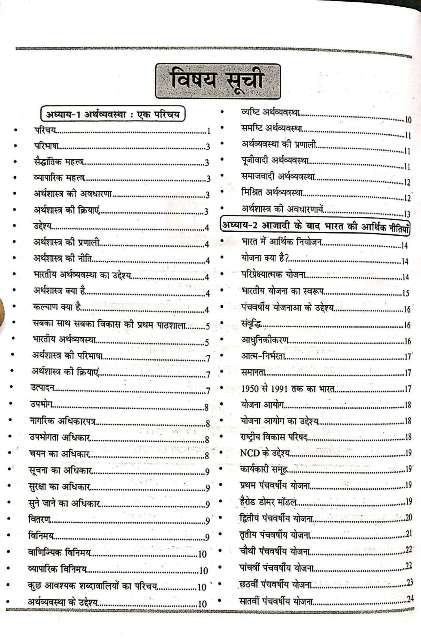 विषय सूची
अध्याय-1 अर्थव्यवस्था : एक परिचय
परिचय 1
परिभाषा 3
सैद्धांतिक महत्व 3
व्यापारिक महत्व 3
अर्थशास्त्र की अवधारणा 3
अर्थशास्त्र की क्रियाएं 3
उद्देश्य 4
अर्थशास्त्र की प्रणाली 4
अर्थशास्त्र की नीति 4
भारतीय अर्थव्यवस्था का उद्देश्य 4
अर्थशास्त्र क्या है 4
कल्याण क्या है 4
सबका साथ सबका विकास की प्रथम पाठशाला 5
भारतीय अर्थव्यवस्था 5
अर्थशास्त्र की परिभाषा 7
अर्थशास्त्र की क्रियाएं 7
उत्पादन 7
उपभोग 8
नागरिक अधिकारपत्र 8
उपभोगता अधिकार 8
चयन का अधिकार 8
सूचना का अधिकार 9
सुरक्षा का अधिकार 9
सुने जाने का अधिकार 9
वितरण 9
विनिमय 9
वाणिज्यिक विनिमय 10
व्यापारिक विनिमय 10
कुछ आवश्यक शब्दावलियों का परिचय 10
अर्थव्यवस्था के उद्देश्य 10
व्यष्टि अर्थव्यवस्था 10
समष्टि अर्थव्यवस्था 11
अर्थव्यवस्था की प्रणाली 11
पूजीवादी अर्थव्यवस्था 11
समाजवादी अर्थव्यवस्था 12
मिश्रित अर्थव्यवस्था 12
अर्थशास्त्र की अवधारणायें 13
अध्याय-2 आजादी के बाद भारत की आर्थिक नीतियां
भारत में आर्थिक नियोजन 14
योजना क्या है? 14
परिप्रेक्ष्यात्मक योजना 14
भारतीय योजना का स्वरूप 15
पंचवर्षीय योजनाओ के उद्देश्य 16
संवृद्धि 16
आधुनिकीकरण 16
आत्म-निर्भरता 17
समानता 17
1950 से 1991 तक का भारत 17
योजना आयोग 18
योजना आयोग का उद्देश्य 18
राष्ट्रीय विकास परिषद 18
NCD के उद्देश्य 19
कार्यकारी समूह 19
प्रथम पंचवर्षीय योजना 19
हैरोड डोमर मॉडल 19
द्वितीय पंचवर्षीय योजना 20
तृतीय पंचवर्षीय योजना 21
चौथी पंचवर्षीय योजना 22
पांचवीं पंचवर्षीय योजना 22
छठवीं पंचवर्षीय योजना 23
सातवीं पंचवर्षीय योजना 24